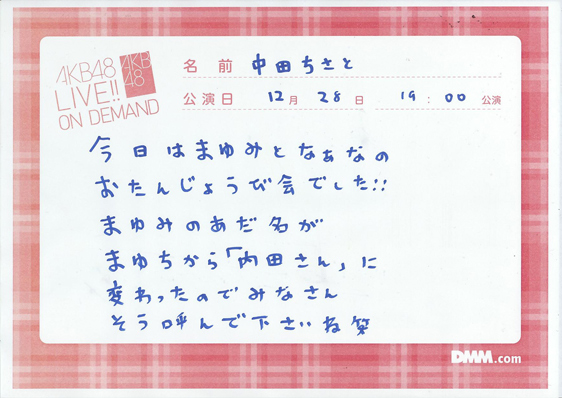 AKB48
LIVE!!
ON DEMAND
AKB
48
名前 中田ちさと
公演日 12月 28日 19:00 公演
今日はまゆみとなぁなの
おたんじょうび会でした!!
まゆみのあだ名が
まゆちから「内田さん」に
変わったのでみなさん
そう呼んで下さいね笑
DMM.com